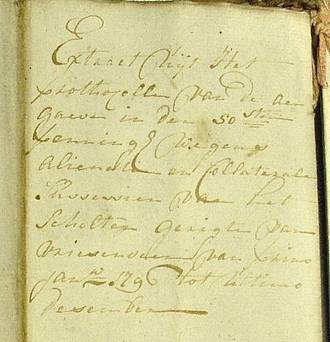 Extract uijt Het
prothocolle van de aen
gaven in den 50 sten
penning wegens
aliënatie en collaterale
Successien van het
Scholten gerigte van
Vriesenveen van primo
janry 1796 tot ultimo
desember